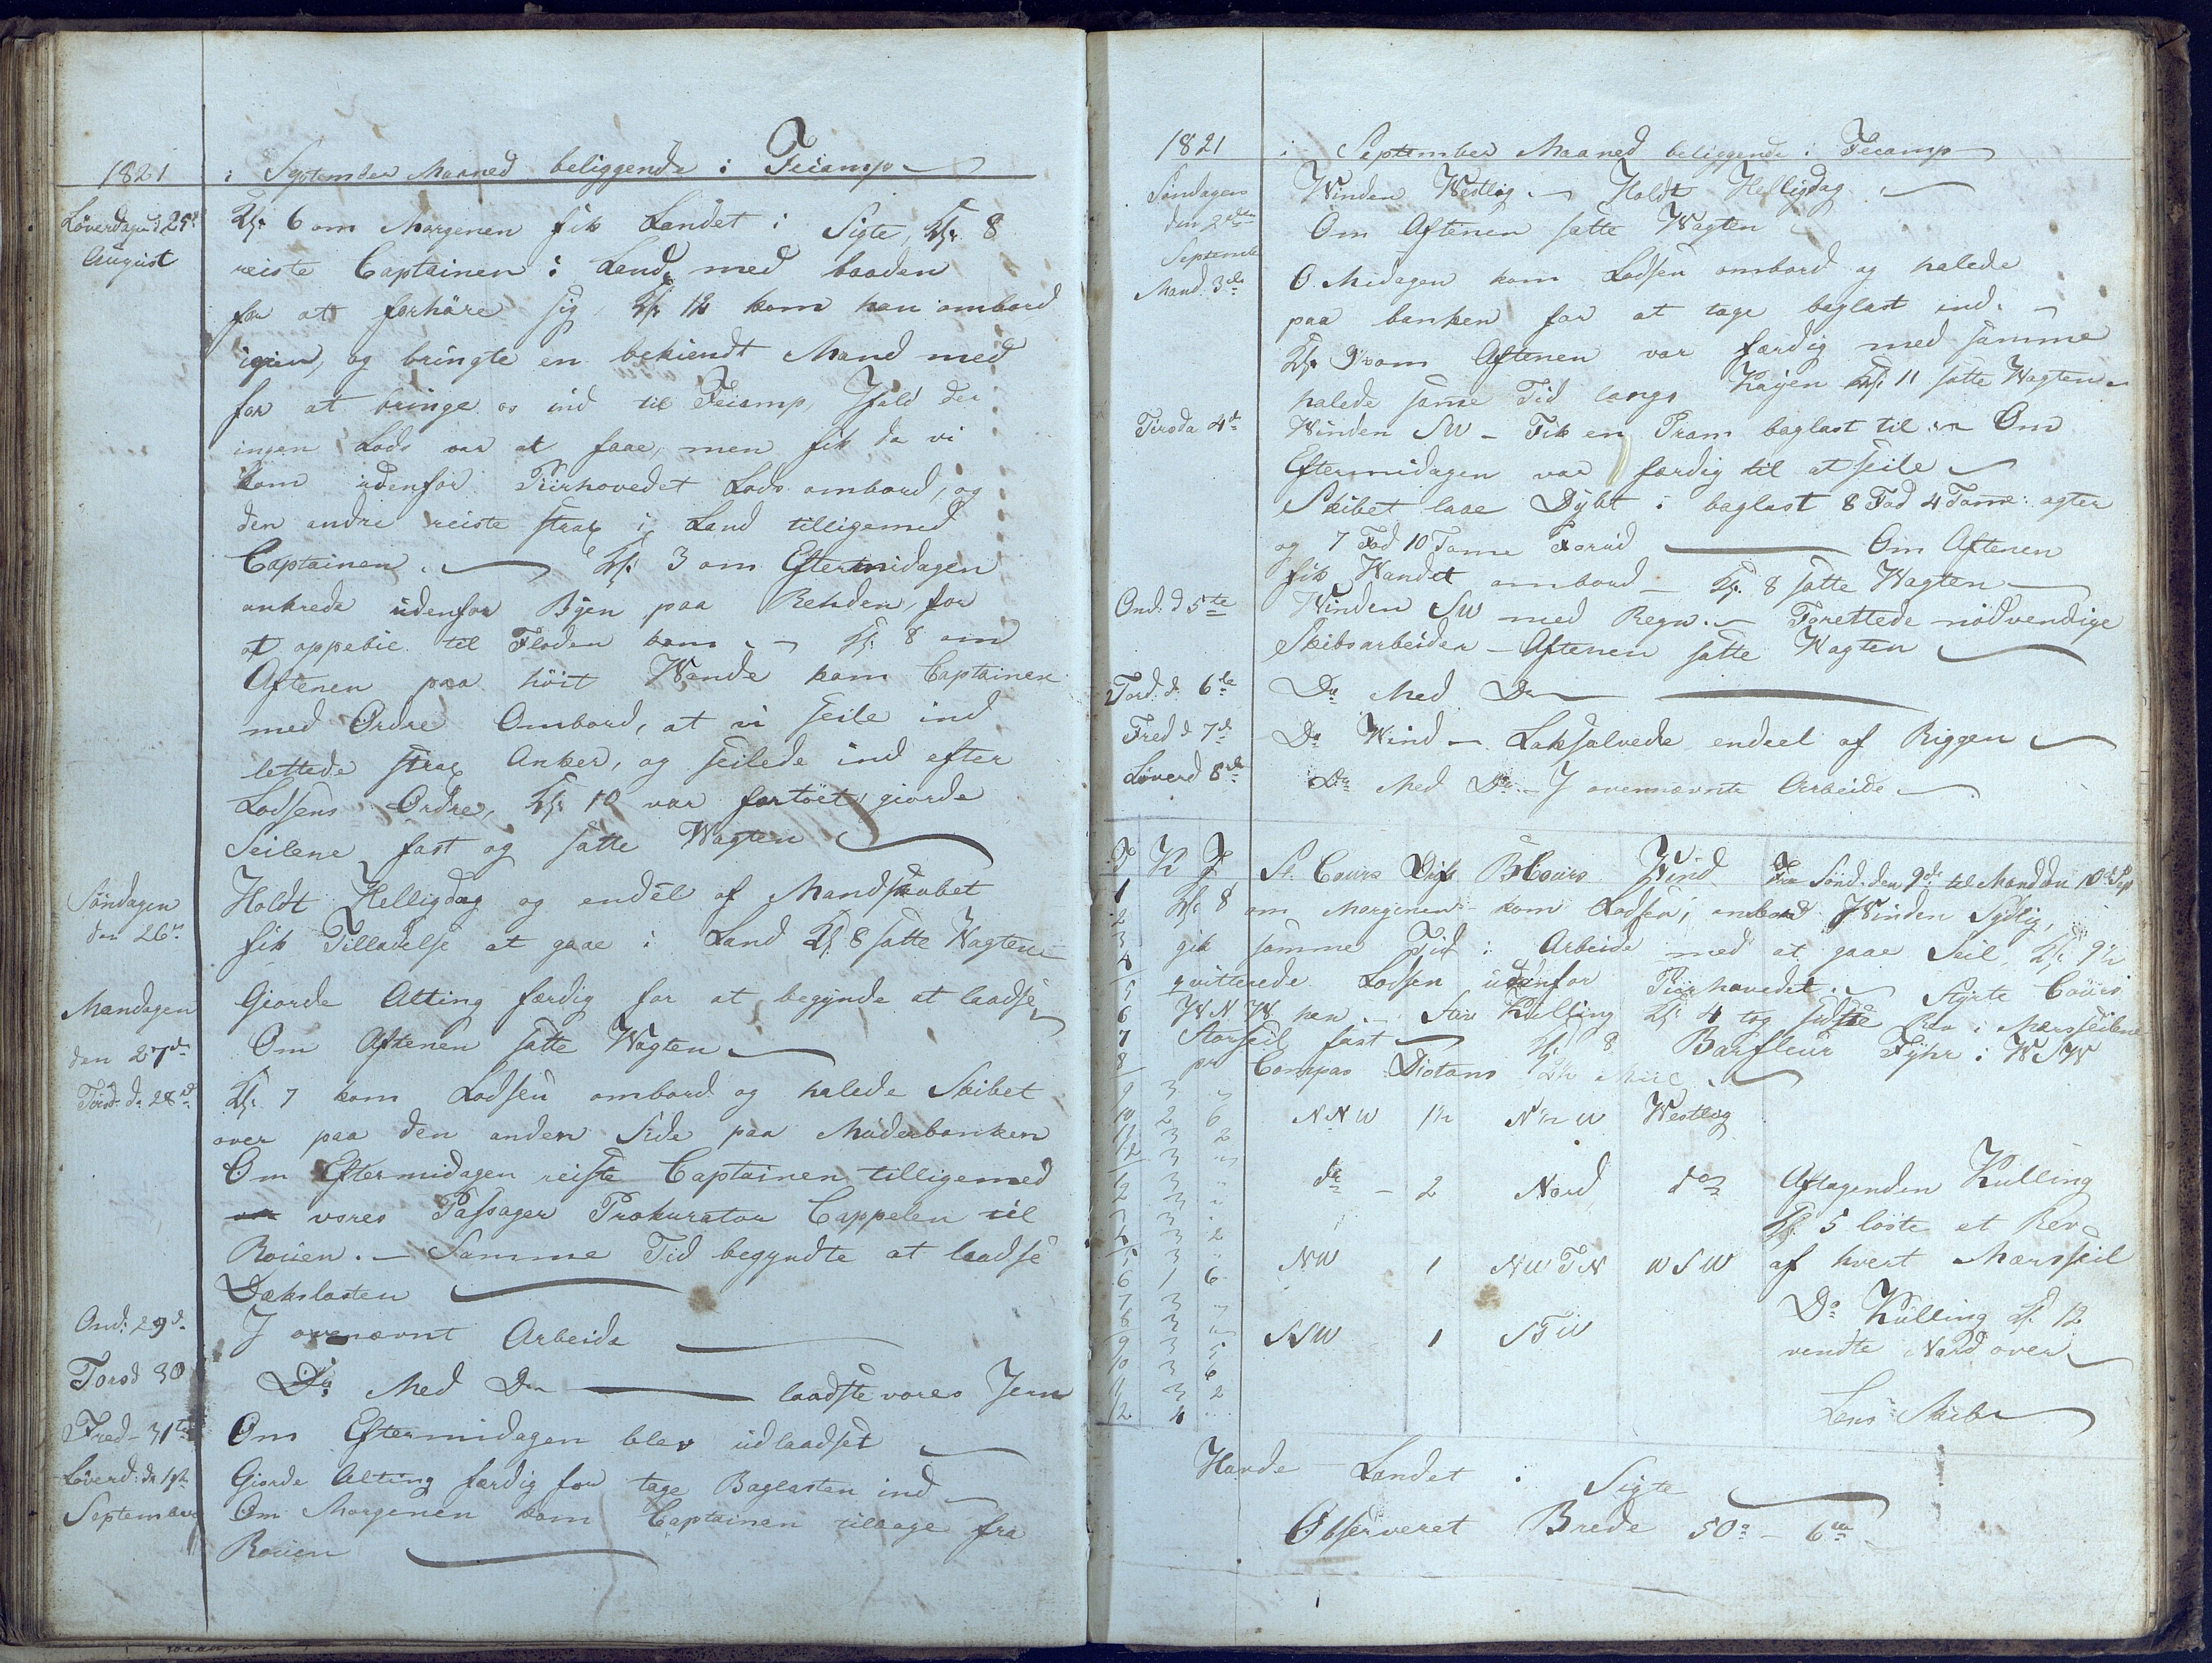 1821 i September Maaned beliggende i Feiamp
Löverdagen d 25de Kl: 6 om Morgenen fik Landet i Sigte, Kl: 8
August reiste Captainen i Land med baaden
for at forhöre sig Kl: 12 kom han ombord
igien, og bringte en bekiendt Mand med
for at bringe os ind til Feiamp, Ifald der
ingen Lods var at faae, men fik da vi
kom udenfor Piirhovedet Lods ombord, og
den andre reiste strax i Land tilligemed
Captainen. Kl: 3 om Eftermidagen
ankrede udenfor Byen paa Rehden, for
at oppebie til Floden kom. Kl: 8 om
Aftenen paa höit Wande kom Captainen
med Ordre Ombord, at vi seile ind
lettede strax Anker, og seilede ind efter
Lodsens Ordre, Kl: 10 var fortöiet, giorde
Seilene fast og satte Wagten
Söndagen Holdt Helligdag og endél af Mandskabet
den 26de fik Tilladelse at gaae i Land Kl: 8 satte Wagten
Mandagen Giorde Alting færdig for at begynde at laadse
den 27de Om Aftenen satte Wagten
Tirsd: d: 28de Kl: 7 kom Lodsen ombord og halede Skibet
over paa den anden Side paa Muderbanken
Om Eftermidagen reiste Captainen tilligemed
vores Passager Prokurator Cappelen til
Rouen. Samme Tid begyndte at laadse
Dækslasten
Ond: 29de I ovenævnt Arbeide
Torsd 30 Do Med Do laadste vores Jern
Fred 31te Om Eftermidagen blev udlaadset
Löverd: d: 1ste Giorde Alting færdig for tage Baglasten ind
September Om Morgenen kom Captainen tilbage fra
Rouen
1821 i September Maaned beliggende i Fecamp
Söndagen Winden Westlig. Holdt Helligdag.
den 2den Om Aftenen satte Wagten
September
Mand. 3de O. Midagen kom Lodsen ombord og halede
paa banken for at tage baglast ind.
Kl: 9 1/2 om Aftenen var færdig med samme
halede same Tid langs Kayen Kl: 11 satte Wagten
Tirsda 4de Winden SW - Fik en Pram baglast til. Om
Eftermidagen var færdig til at seile
Skibet laae Dybt i baglast 8 Fod 4 Tome: agter
og 7 Fod 10 Tome Forud Om Aftenen
fik Wandet ombord - Kl: 8 satte Wagten
Ond: d 5te Winden SW med Regn. Forettede nödvendige
Skibsarbeider - Aftenen satte Wagten
Tord: d: 6te Do Med Do
Fred d 7de Do Wind - Laksalvede endeel af Riggen
Löverd 8de Do Med Do - I ovennævnte Arbeide
T K F St. Cours Drift B Cours Wind Fra Sönd. den 9de til Mand den 10de Sep
1 Kl: 8 om Morgenen kom Lodsen, ombord Winden Sydlig,
2
3 gik samme Tid i Arbeide med at gaae Seil, Kl: 9 1/2
4 qvitterede Lodsen udenfor Piirhovedet. Styrte Cours
5
6 WNW hen. Stiv Kulling Kl: 4 tog sidste Rev i Mersseilene
7 Storseil fast Kl: 8 Barfleur Fyhr i WSW
8 pr Compas Distans 2 1/2 Miil
9 3 "
10 2 6 NNW 1 1/2 N 1/2 W Westlig
11 3 2
12 3 "
1 3 " do - 2 Nord do Aftagenden Kulling
2 3 "
3 3 . Kl: 5 löste et Rev
4 3 2
5 3 " NW 1 NWTN WSW af hvert Mersseil
6 1 6
7 3 " Do Kulling Kl: 12
8 3 "
9 3 5 SSW 1 STW vendte Nord over
10 3 6
11 3 2 Lens Skibe
12 4 .
Havde Landet i Sigte
Observeret Brede 50° - 6m